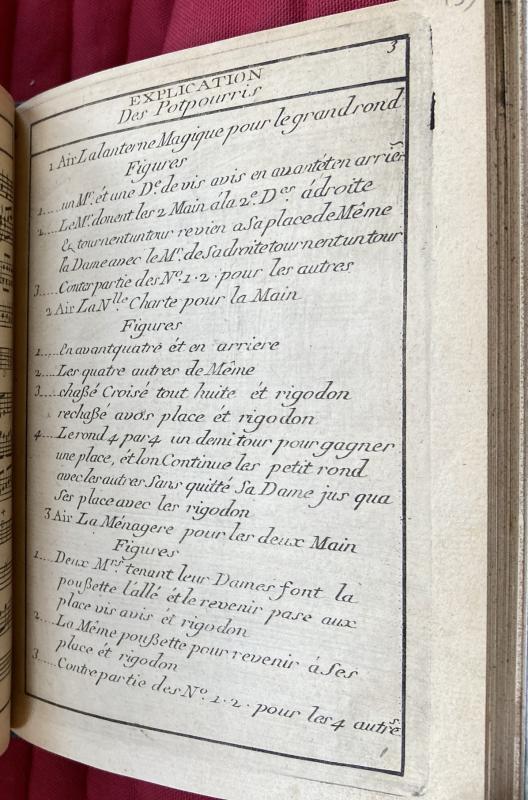 3
EXPLICATION
Des Potpourris
1 Air La lanterne Magique pour le grand rond
Figures
1.... un Mr. ét une De. de vis avis en avant ét en arrie.rs
2.... Le Mr. donent les 2 Main á la 2e. Des. á droite
& tournent un tour revien a Sa place de Même
la Dame avec le Mr. de Sa droite tournent un tour
3.... Conter partie des No. 1 . 2 . pour les autres
2 Air La Nlle Charte pour la Main
Figures
1.... En avant quatre ét en arriere
2.... Les quatre autres de Même
3.... chaßé Croisé tout huite ét rigodon
rechaßé avos place ét rigodon
4.... Le rond 4 par 4 un demi tour pour gagner
une place, ét lon Continue les petit rond
avec les autres Sans quitté Sa Dame jus qua
Ses place avec les rigodon
3 Air La Ménagere pour les deux Main
Figures
1.... Deux Mrs. tenant leur Dames font la
poußette l'allé ét le revenir pase aux
place vis avis ét rigodon
2.... La Même poußette pour revenir á Ses
place ét rigodon
3.... Contre partie des No. 1 . 2 . pour les 4 autres